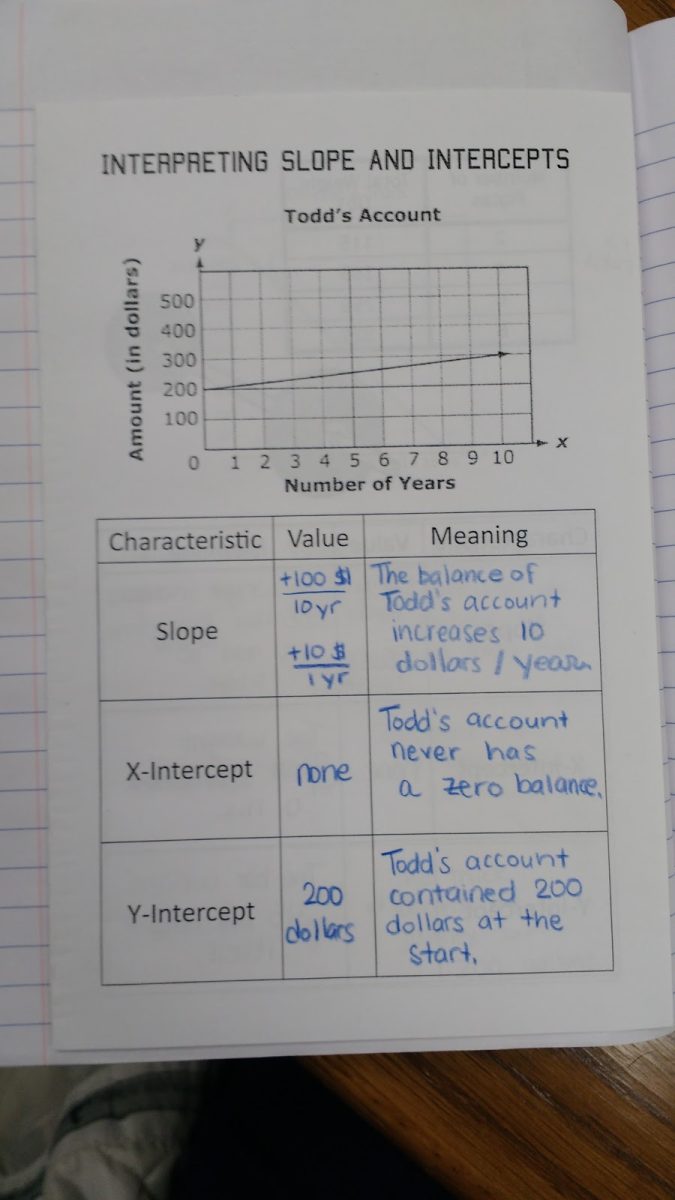 INTERPRETING SLOPE AND INTERCEPTS
Todd's Account
y
Amount (in dollars)
500
400
300
200
100
x
0 1 2 3 4 5 6 7 8 9 10
Number of Years
Characteristic Value Meaning
Slope
+100 $
10 yr
+10 $
1 yr
The balance of
Todd's account
increases 10
dollars / year
X-Intercept
none
Todd's account
never has
a zero balance.
Y-Intercept
200
dollars
Todd's account
contained 200
dollars at the
start.